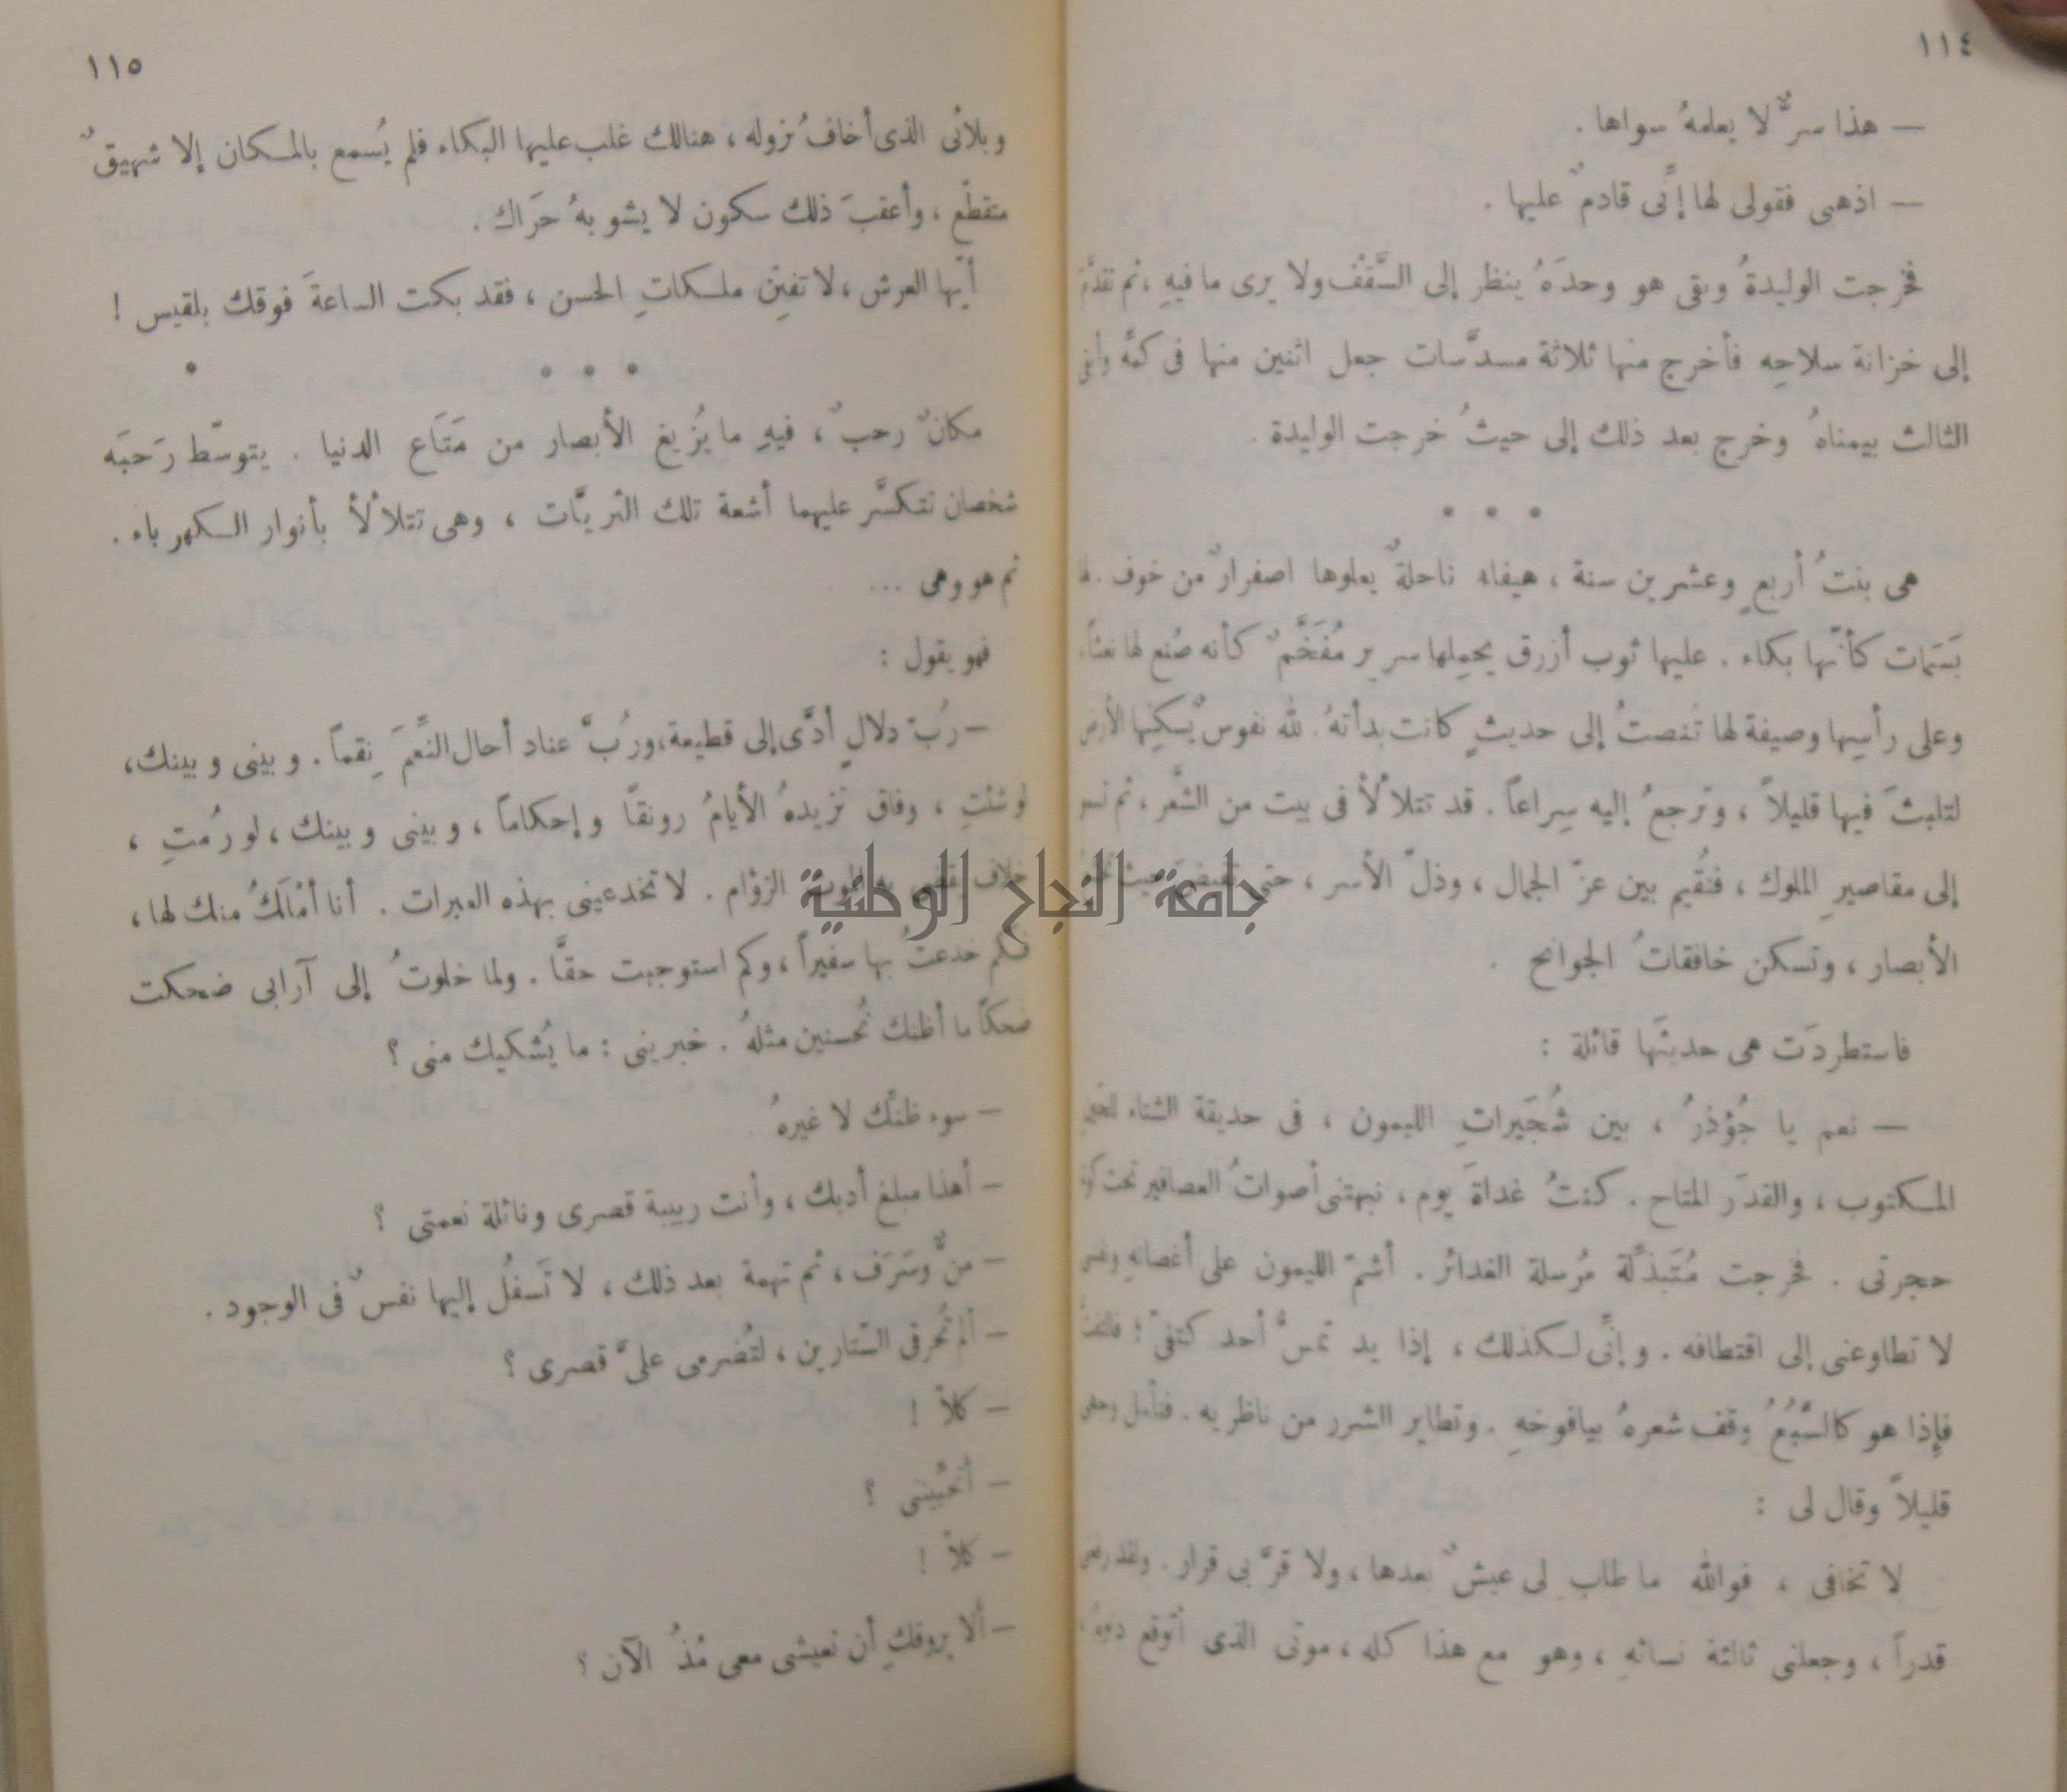 ١١٤
— هذا سرٌّ لا يعلمهُ سواها .
— اذهبى فقولى لها إنّى قادمٌ عليها .
فخرجت الوليدةُ وبقى هو وحدَهُ ينظر إلى السَّقْف ولا يرى ما فيهِ ، ثم تقدَّمَ
إلى خزانة سلاحِه فأخرج منها ثلاثة مسدَّسات جعل اثنين منها فى كمّه وأبقى
الثالث بيمناهُ وخرج بعد ذلك إلى حيثُ خرجت الوليدة .
* * *
هى بنتُ أربعٍ وعشرين سنة ، هيفاء ناحلةٌ يعلوها اصفرارٌ من خوف . لها
بَسَمات كأنّها بكاء . عليها ثوب أزرق يحمِلها سرير مُفَخَّمٌ كأنه صُنع لها نعشاً .
وعلى رأسِها وصيفة لها تُنصتُ إلى حديثٍ كانت بدأتهُ . لله نفوسٌ يُسكِنها الأرض
لتلبثَ فيها قليلاً ، وترجعُ إليه سِراعاً . قد تتلألأ فى بيت من الشَّعر ، ثم تسمو
إلى مقاصيرِ الملوك ، فتُقيم بين عزّ الجمال ، وذلّ الأسر ، حتى تفيض حيثُ
الأبصار ، وتسكن خافقاتُ الجوانح .
فاستطردَت هى حديثَها قائلة :
— نعم يا جُؤذرُ ، بين شُجَيراتِ الليمون ، فى حديقة الشتاء
المكتوب ، والقدَر المتاح . كنتُ غداةَ يوم ، نبهتنى أصواتُ العصافير تحت كوة
حجرتى . فخرجت مُتَبذِّلة مُرسلة الغدائر . أشمّ الليمون على أغصانهِ ونفسى
لا تطاوعنى إلى اقتطافه . وإنّى لكذلك ، إذا يد تمسُّ أحد كتفىّ ؛ فالتفتُّ
فإذا هو كالسَّبُعُ وقف شعرهُ بيافوخهِ . وتطاير الشرر من ناظريه . فتأمل وجهى
قليلاً وقال لى :
لا تخافى ، فوالله ما طاب لى عيشٌ بعدها ، ولا قرَّ بى قرار . ولقد رفعنى
قدراً ، وجعلنى ثالثة نسائهِ ، وهو مع هذا كله ، موتى الذى أتوقع
١١٥
وبلائى الذى أخافُ نزوله ، هنالك غلب عليها البكاء فلم يُسمع بالمكان إلا شهيقٌ
متقطّع ، وأعقبَ ذلك سكون لا يشوبهُ حرَاك .
أيّها العرش ، لا تفتِن ملكاتِ الحسن ، فقد بكت الساعةَ فوقك بلقيس !
* * *
مكانٌ رحبٌ ، فيهِ ما يُزيغ الأبصار من مَتَاع الدنيا . يتوسّط رَحبَه
شخصان تتكسَّر عليهما أشعة تلك الثريَّات ، وهى تتلألأ بأنوار الكهرباء .
ثم هو وهى ...
فهو يقول :
— رُبّ دلالٍ أدَّى إلى قطيعة ، ورُبَّ عناد أحال النِّعَم نِقماً . وبينى وبينك ،
لو شئتِ ، وفاق تزيدهُ الأيامُ رونقاً وإحكاماً ، وبينى وبينك ، لو رُمتِ ،
خلاف الزؤام . لا تخدعينى بهذه العبرات . أنا أمْلَكُ منك لها ،
فكم خدعتُ بها سفيراً ، وكم استوجبت حقًّا . ولما خلوتُ إلى آرابى ضحكت
ضحكاً ما أظنك تُحسنين مثلهُ . خبرينى : ما يُشكيك منى ؟
— سوء ظنّك لا غيرهُ
— أهذا مبلغ أدبك ، وأنت ربيبة قصرى ونائلة نعمتى ؟
— منٌّ وسَرَف ، ثم تهمة بعد ذلك ، لا تَسفلُ إليها نفسٌ فى الوجود .
— ألم تُحرقى الستّارين ، لتُضرمى علىَّ قصرى ؟
— كلاّ !
— أتحبّيننى ؟
— كلاّ !
— ألا يروقكِ أن تعيشى معى مُذُ الآن ؟
جامعة النجاح الوطنية